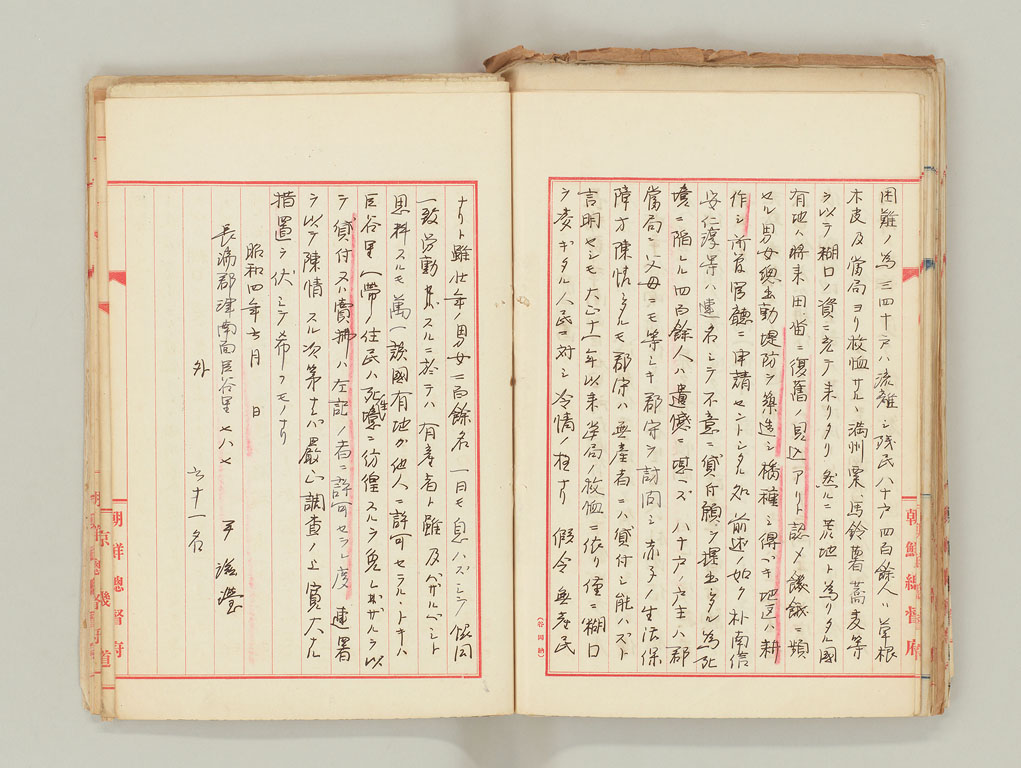 困難ノ為三四十戸ハ流離シ残民八十戸四百餘人ハ草根
木皮及當局ヨリ救恤サル、満州粟、馬鈴薯蕎麦等
ヲ以テ糊口ノ資ニ充テ来リタリ然ルニ荒地ト為リタル國
有地ハ将来田、畓ニ復舊ノ見込アリト認メ饑餓ニ頻
セル男女總出動堤防ヲ築造シ播種シ得ベキ地区ハ耕
作シ所管官聽ニ申請セントシタル処前述ノ如ク朴南信
安仁淳等ハ連名シテ不意ニ貸付願ヲ提出シタル為死
境ニ陥レル四百餘人ハ遺憾ニ堪ヘズ八十戸ノ戸主ハ郡
當局ニ父母ニモ等シキ郡守ヲ訪問シ赤子ノ生活保
障方陳情シタルモ郡守ハ無産者ニハ貸付シ能ハズト
言明セシモ大正十一年以来當局ノ救恤ニ依リ僅ニ糊口
ヲ凌ギタル人民ニ対シ冷情ノ極ナリ假令無産民
ナリト雖壮年ノ男女二百餘名一日モ息ハズシテ協同
一致労動スルニ於テハ有産者ト雖及バザルベシト
思料スルモ萬一該國有地カ他人ニ許可セラル、トキハ
巨谷里一帶ノ住民ハ死境ニ彷徨スルヲ免レザルヲ以
テ貸付又ハ賣拂ハ左記ノ者ニ許可セラレ度連署
ヲ以テ陳情スル次第ナレバ嚴正調査ノ上寛大ナル
措置ヲ伏シテ希フモノナリ
昭和四年六月 日
長湍郡津南面巨谷里七八七
外
六十一名
朝鮮總督府
朝鮮總督府
京畿道
(谷岡納)